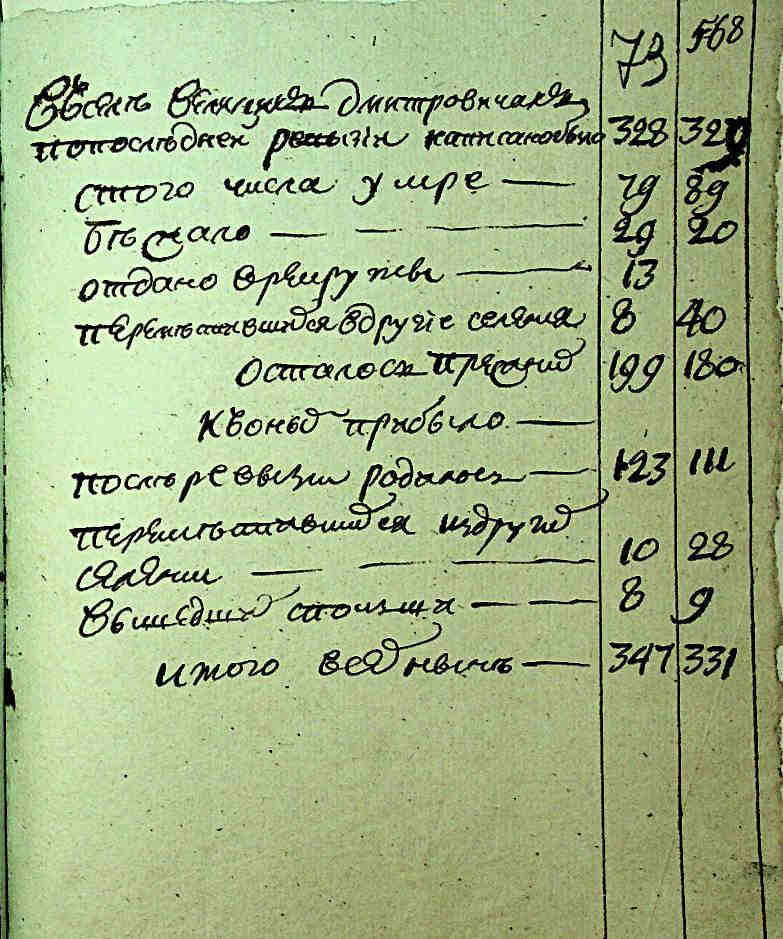 73 568
Всѣлѣ Великихъ Дмитровичахъ
попослѣдней ревизіи написанобыло 328 329
стого числа умре — 79 89
бѣжало — — — 29 20
отдано врекруты — 13
перемѣстившихся вдругіе селения 8 40
осталось прежних 199 180
квоным прибыло —
послѣ ревизии родилось — 123 111
перемѣстившихся издругих
селении — — — 10 28
вышедших — — 8 9
итого всех нынѣ — 347 331